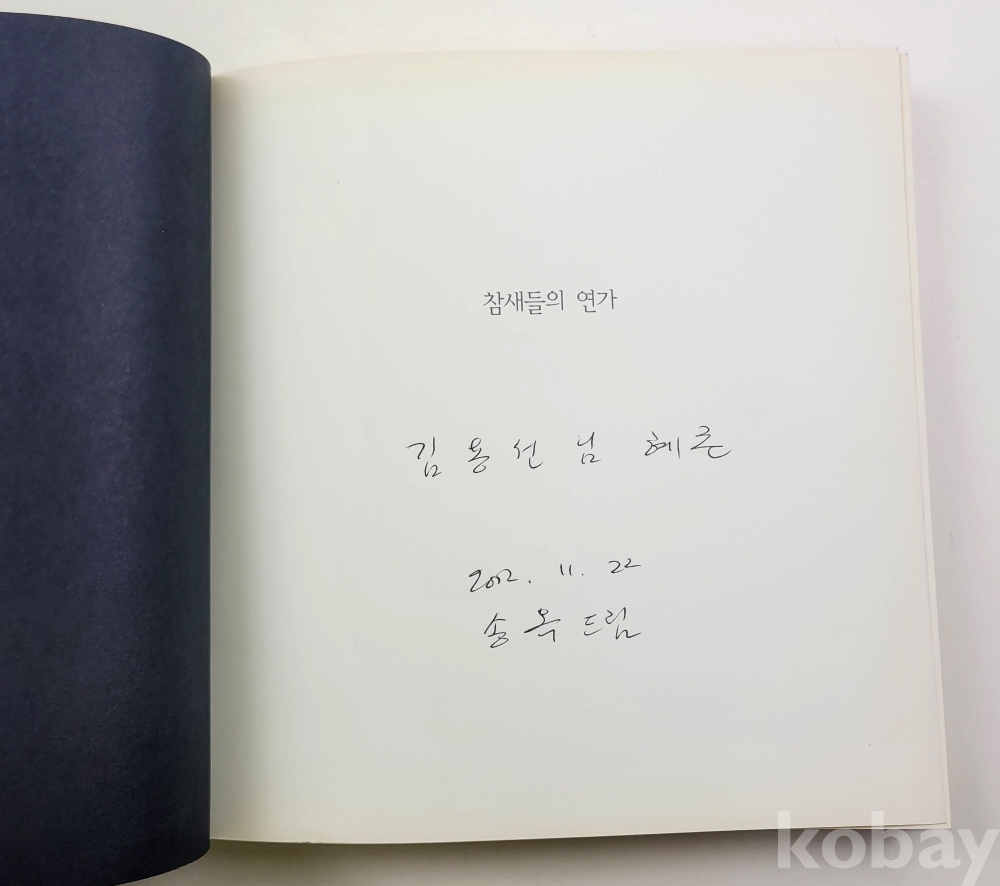 참새들의 연가
김용선 님 혜존
2002. 11. 22
송옥 드림
kobay